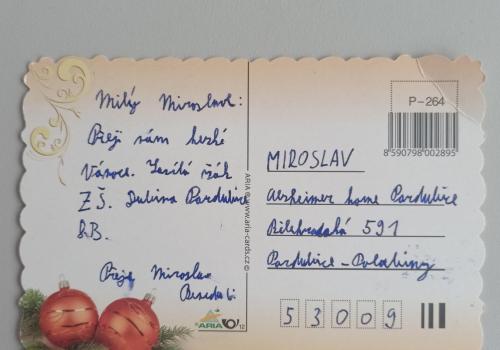 Milý Miroslave:
Přeji vám hezké
Vánoce. žák
ZŠ. Dubina Pardubice
8.B.
Přeje Miroslav
ARIA
12
ARIA © www.aria-cards.cz ©
P-264
8 590798 002895
MIROSLAV
Alzheimer home Pardubice
Bělehradská 591
Pardubice-Polabiny
53009